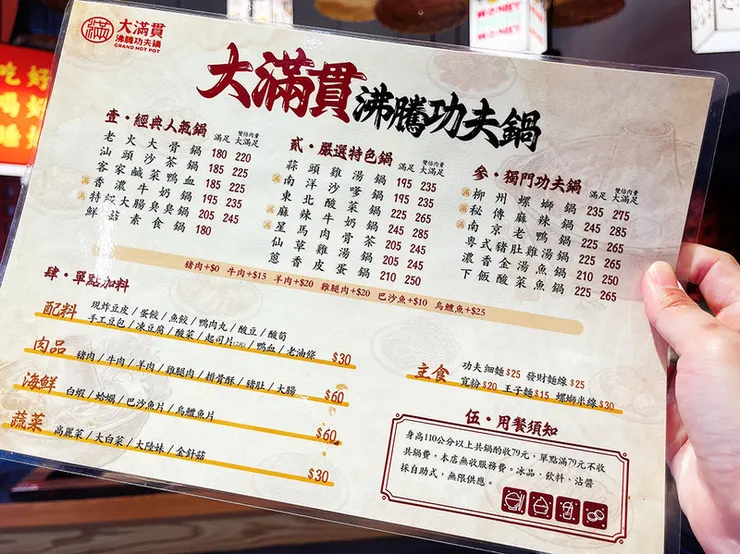 大滿貫
沸騰功夫鍋
GRAND HOT POT
大滿貫沸騰功夫鍋
壹·經典人氣鍋 滿足 雙倍肉量大滿足
老火大骨鍋 180 220
汕頭沙茶鍋 185 225
客家鹹菜鴨血 185 225
香濃牛奶鍋 195 235
特級大腸臭臭鍋 205 245
鮮菇素食鍋 180
貳·嚴選特色鍋 滿足 雙倍肉量大滿足
蒜頭雞湯鍋 195 235
南洋沙嗲鍋 195 235
東北酸菜鍋 225 265
麻辣牛奶鍋 245 285
星馬肉骨茶 205 245
仙草雞湯鍋 205 245
蔥香皮蛋鍋 210 250
參·獨門功夫鍋 滿足 雙倍肉量大滿足
柳州螺螄鍋 235 275
秘傳麻辣鍋 245 285
南京老鴨鍋 225 265
粵式豬肚雞鍋 225 265
濃香金湯魚鍋 210 250
下飯酸菜魚鍋 225 265
豬肉+$0 牛肉+$15 羊肉+$20 雞腿肉+$20 巴沙魚+$10 烏鱧魚+$25
肆·單點加料
配料 現炸豆皮/蛋餃/魚餃/鴨肉丸/酸豆/酸筍
手工豆包/凍豆腐/酸菜/起司片/鴨血/老油條 $30
肉品 豬肉/牛肉/羊肉/雞腿肉/頰骨酥/豬肚/大腸 $60
海鮮 白蝦/蛤蠣/巴沙魚片/烏鱧魚片 $60
蔬菜 高麗菜/大白菜/大陸妹/金針菇 $30
主食 功夫細麵$25 發財麵線$25
寬粉$20 王子麵$15 螺螄米線$30
伍·用餐須知
身高110公分以上共鍋酌收79元,單點滿79元不收
共鍋費,本店無收服務費。冰品、飲料、沾醬
採自助式,無限供應。